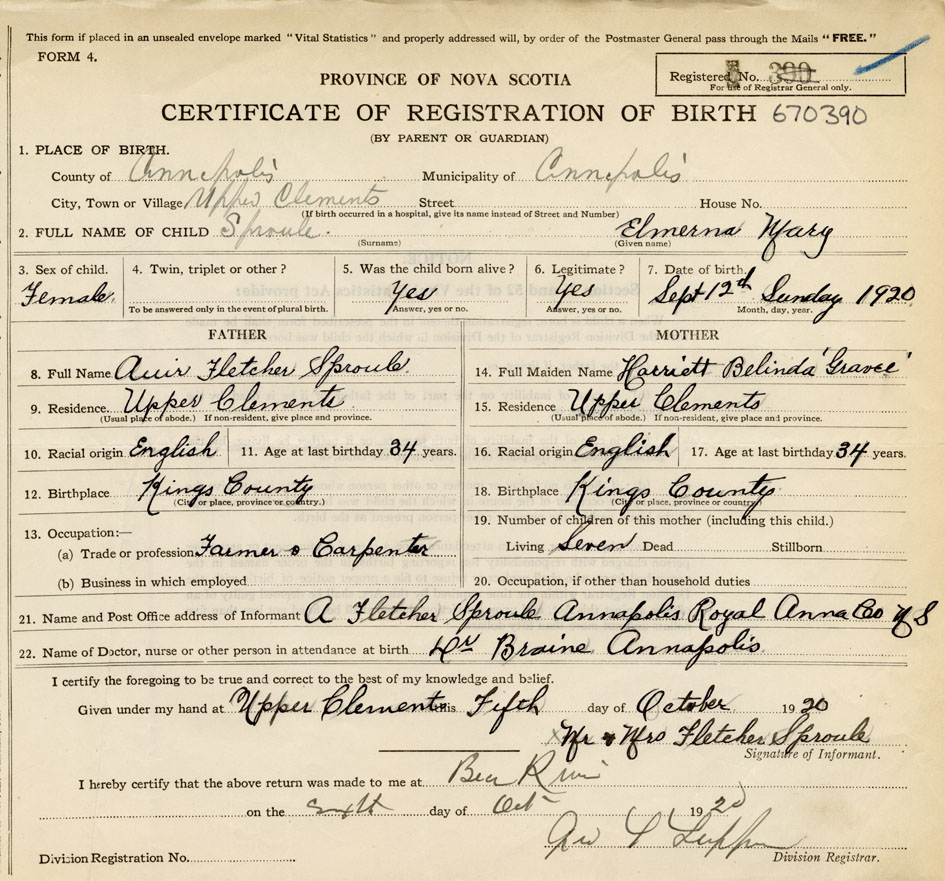 This form if placed in an unsealed envelope marked "Vital Statistics" and properly addressed will, by order of the Postmaster General pass through the Mails "FREE."
FORM 4.
PROVINCE OF NOVA SCOTIA
Registered No. 390
For use of Registrar General only.
CERTIFICATE OF REGISTRATION OF BIRTH 670390
(BY PARENT OR GUARDIAN)
1. PLACE OF BIRTH.
County of Annapolis Municipality of Annapolis
City, Town or Village Upper Clements Street House No.
(If birth occurred in a hospital, give its name instead of Street and Number)
2. FULL NAME OF CHILD Sproule. Elmerna Mary
(Surname) (Given name)
3. Sex of child. 4. Twin, triplet or other? 5. Was the child born alive? 6. Legitimate? 7. Date of birth.
Female. Yes Yes Sept 12th Sunday 1920
To be answered only in the event of plural birth. Answer, yes or no. Answer, yes or no. Month, day, year.
FATHER MOTHER
8. Full Name Fletcher Sproule. 14. Full Maiden Name Harriett Belinda
9. Residence. Upper Clements 15. Residence Upper Clements
(Usual place of abode.) If non-resident, give place and province. (Usual place of abode.) If non-resident, give place and province.
10. Racial origin English 11. Age at last birthday 34 years. 16. Racial origin English 17. Age at last birthday 34 years.
12. Birthplace Kings County 18. Birthplace Kings County
(City or place, province or country.) (City or place, province or country.)
13. Occupation:— 19. Number of children of this mother (including this child.)
(a) Trade or profession Farmer & Carpenter Living Seven Dead Stillborn
(b) Business in which employed 20. Occupation, if other than household duties
21. Name and Post Office address of Informant A Fletcher Sproule Annapolis Royal Anna Co N S
22. Name of Doctor, nurse or other person in attendance at birth Dr Braine Annapolis.
I certify the foregoing to be true and correct to the best of my knowledge and belief.
Given under my hand at Upper Clements this Fifth day of October 1920
Mr & Mrs Fletcher Sproule
Signature of Informant.
I hereby certify that the above return was made to me at Bear River
on the sixth day of Oct 1920
Geo
Division Registration No. Division Registrar.